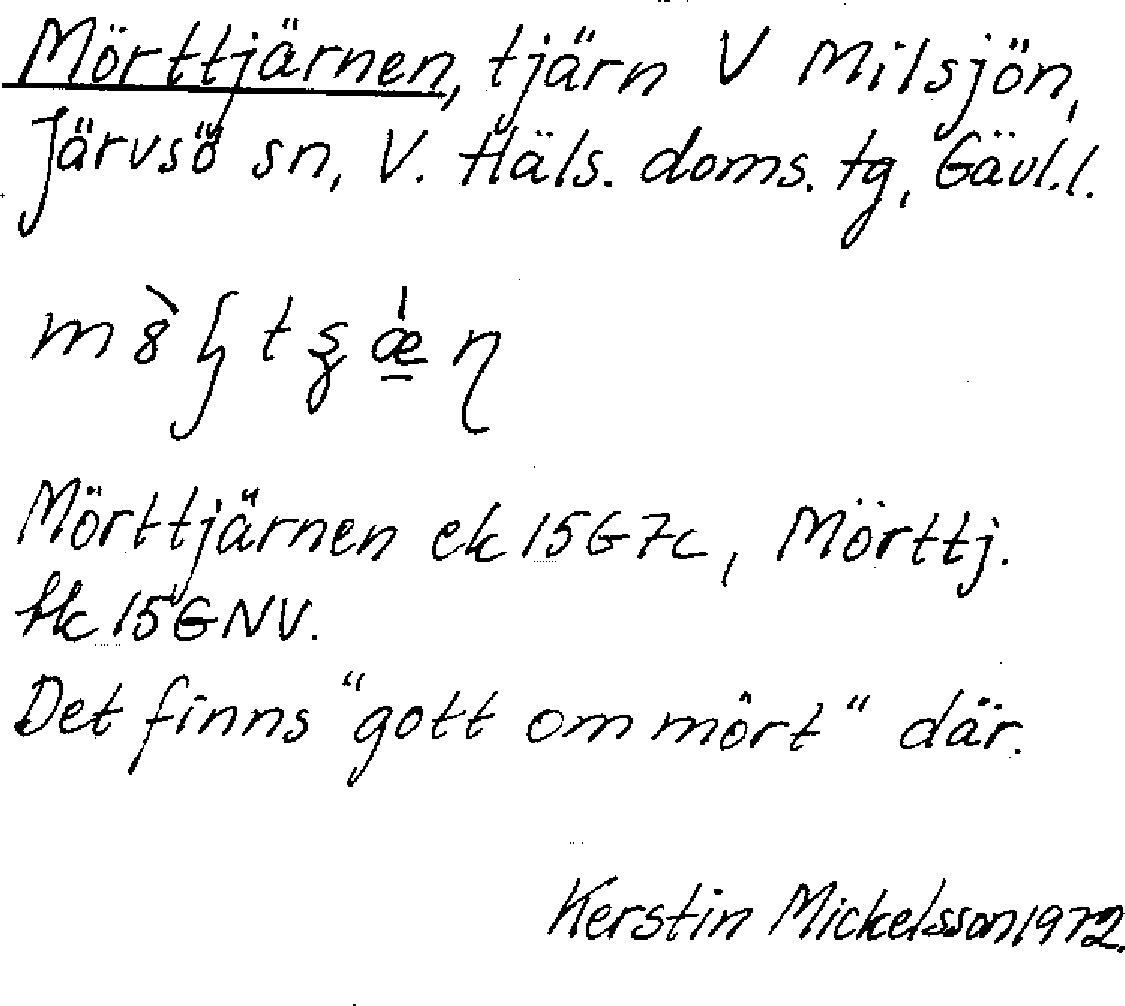 Mörttjärnen, tjärn V Milsjön,
Järvsö sn, V. Häls. doms. tg, Gävl.l.
Mörttjärnen ek 15G7c, Mörttj.
tk 15GNV.
Det finns "gott om mört" där.
Kerstin Mickelsson 1972.